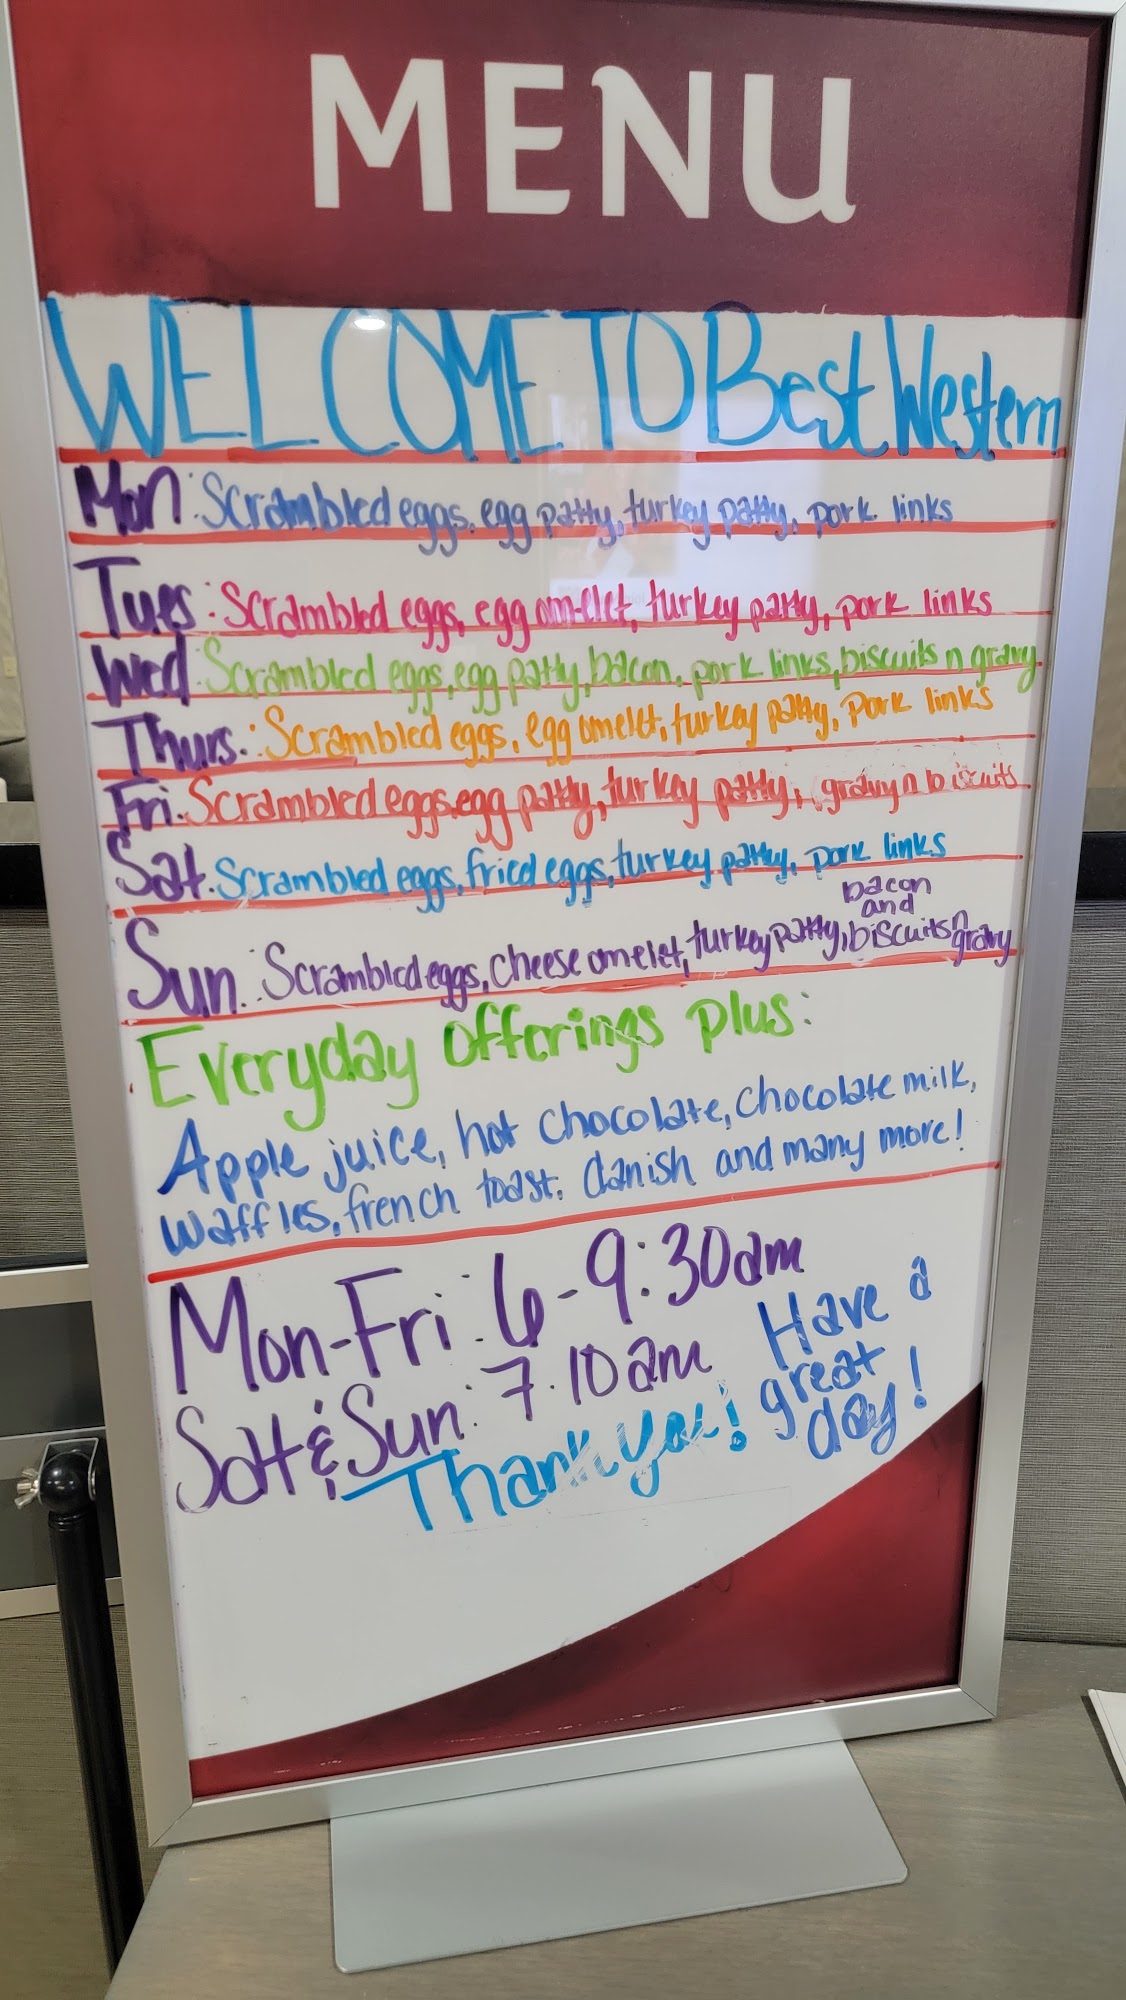 MENU
WELCOME TO Best Western
Mon: Scrambled eggs, egg patty, turkey patty, pork links
Tues: Scrambled eggs, egg omelet, turkey patty, pork links
Wed. Scrambled eggs, egg patty, bacon, pork links, biscuits n gravy
Thurs.: Scrambled eggs, egg omelet, turkey patty, pork links
Fri. Scrambled eggs, egg patty, turkey patty, gravy n biscuits
Sat. Scrambled eggs, fried eggs, turkey patty, pork links
Sun.: Scrambled eggs, cheese omelet, turkey patty, bacon and biscuits n gravy
Everyday Offerings plus:
Apple juice, hot chocolate, chocolate milk,
waffles, french toast, danish and many more!
Mon-Fri: 6-9:30am
Sat & Sun: 7-10am
Thank you! Have a great day!